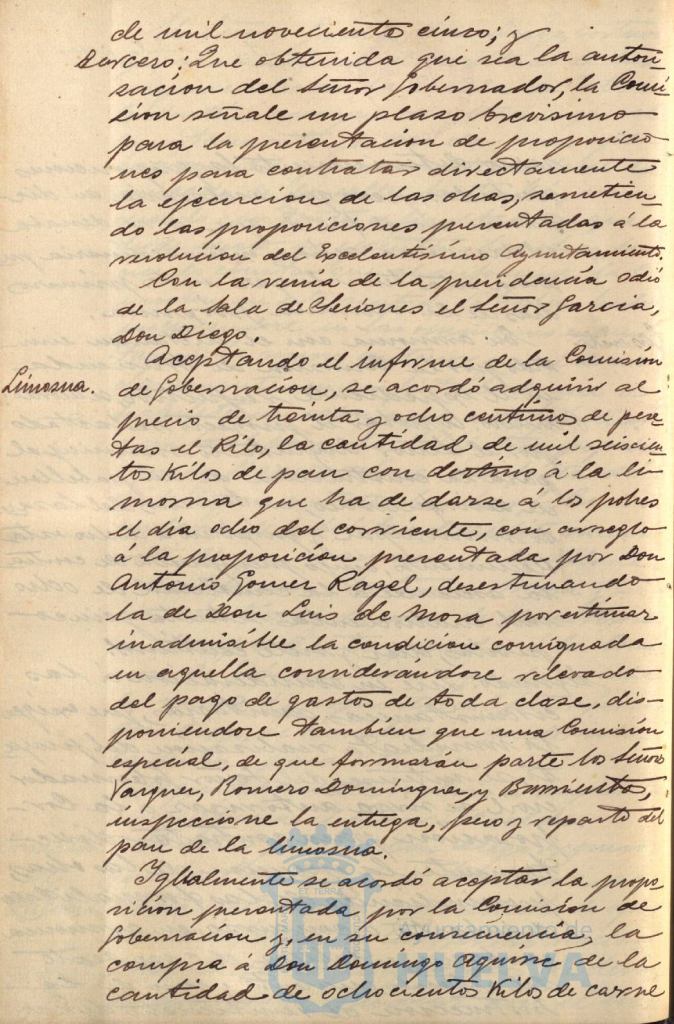 de mil novecientos cinco; y
tercero: Que obtenida que sea la autori-
zacion del Señor Gobernador, la Comi-
sion señale un plazo brevisimo
para la presentacion de proposicio
nes para contratar directamente
la ejecucion de las obras, sometien-
do las proposiciones presentadas á la
resolucion del Excelentísimo Ayuntamiento.
Con la venia de la presidencia salió
de la Sala de Sesiones el Señor Garcia,
Don Diego.
Aceptando el informe de la Comisión
Limosna.
de Gobernación, se acordó adquirir al
precio de treinta y ocho centimos de pese-
tas el Kilo, la cantidad de mil seiscien-
tos Kilos de pan con destino á la li
mosna que ha de darse á los pobres
el día ocho del corriente, con arreglo
á la proposición presentada por Don
Antonio Gomez Ragel, desestimando
la de Don Luis de Mora por estimar
inadmisible la condicion consignada
en aquella considerándose relevado
del pago de gastos de toda clase, dis-
poniendose tambien que una Comisión
especial, de que formarán parte los Señores
Vazquez, Romero Dominguez, y Barrientos,
inspeccione la entrega, peso y reparto del
pan de la limosna.
Igualmente se acordó aceptar la propo-
sición presentada por la Comisión de
Gobernacion y, en su consecuencia, la
compra á Don Domingo Aguirre de la
cantidad de ochocientos Kilos de carne
Ayuntamiento de
HUELVA